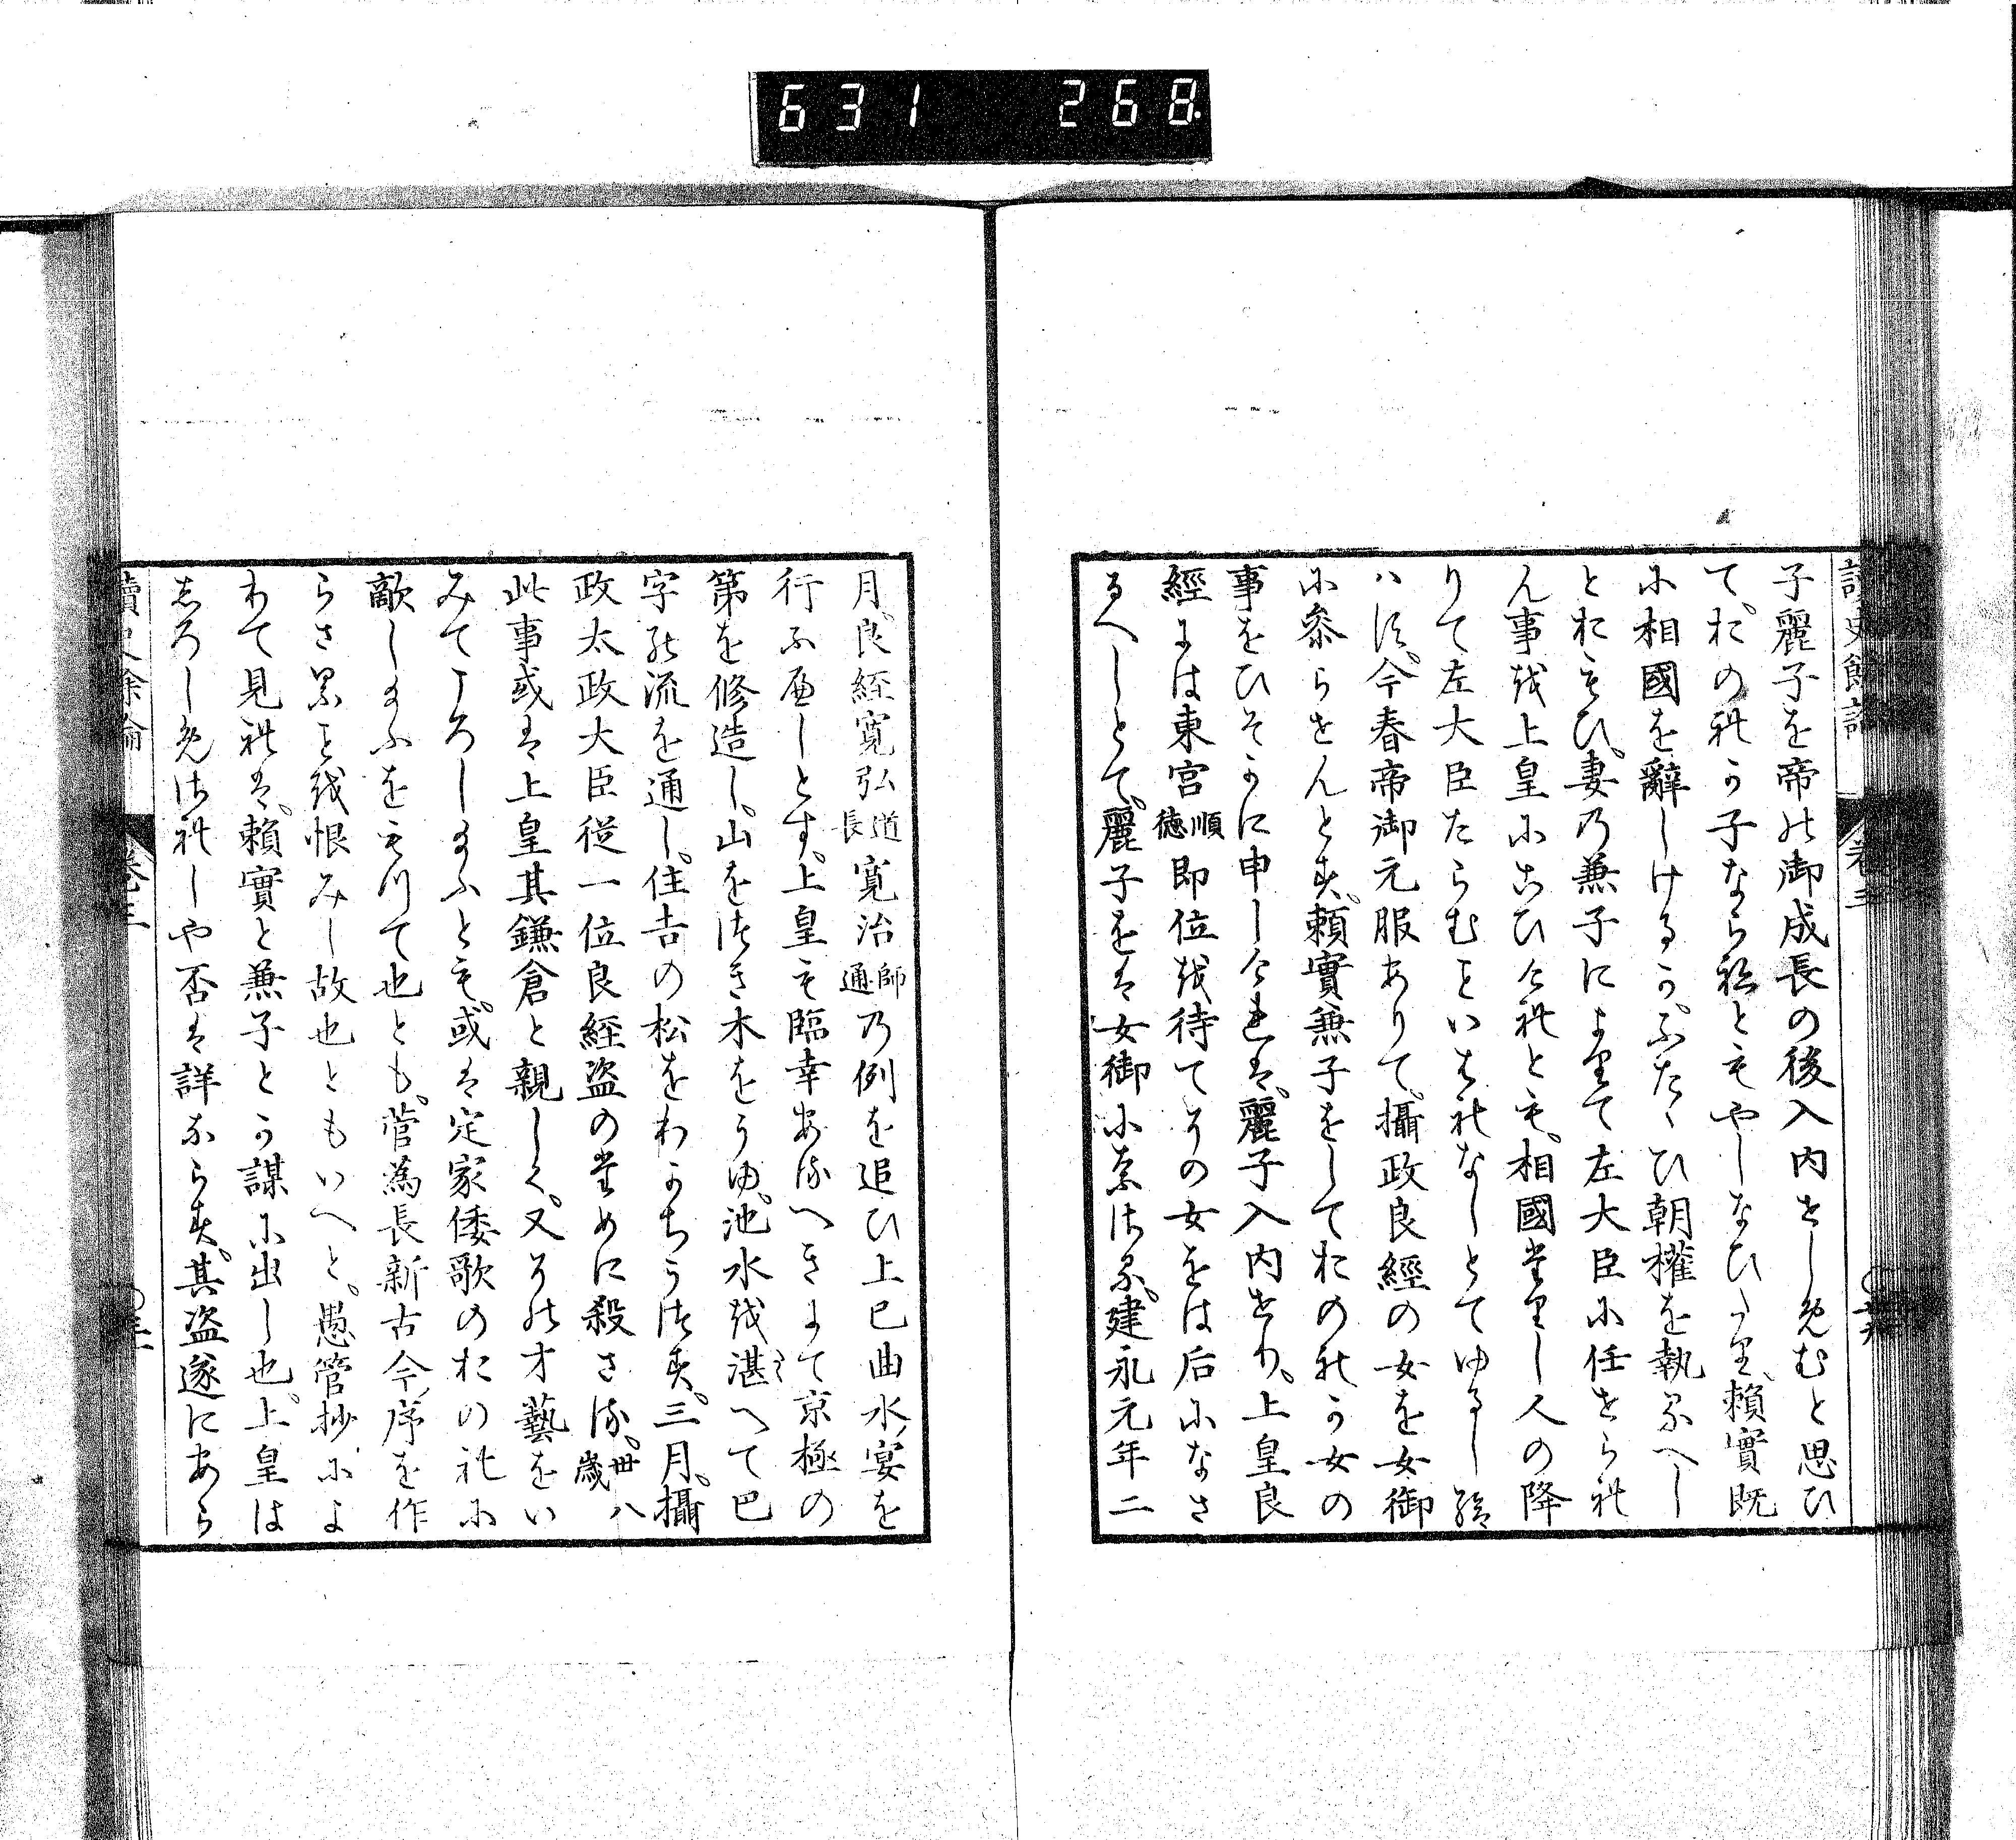 631 268
子麗子を帝の御成長の後入内せしめむと思ひ
て、おのれか子ならねともやしなひたり、頼實既
に相國を辭しけるか、ふたゝひ朝權を執るへし
とおもひ、妻乃兼子によりて左大臣に任せられ
ん事を上皇にこひけれとも、相國たりし人の降
りて左大臣たらむこといはれなしとてゆるし給
ハす、今春帝御元服ありて、攝政良經の女を女御
に參らせんとす、頼實兼子をしておのれか女の
事をひそかに申しけれは、麗子入内せり、上皇良
經には東宮順徳即位を待てその女をは后になさ
るへしとて、麗子をは女御になさる、建永元年二
月、良経寛弘道長寛治師通乃例を追ひ上巳曲水宴を
行ふへしとす、上皇も臨幸あるへきよて京極の
第を修造し、山をつき木をうゆ、池水を湛へて巴
字の流を通し、住吉の松をわかちうつす、三月、攝
政太政大臣従一位良経盗のために殺さる、卅八歳
此事或は上皇其鎌倉と親しく、又その才藝をい
みてころし給ふとも、或は定家倭歌のおのれに
敵し給ふをもつて也とも、菅為長新古今序を作
らさることを恨みし故也ともいへと、愚管抄によ
れて見れは、頼實と兼子とか謀に出し也、上皇は
しろしめされしや否は詳ならす、其盗遂にあら
讀史餘論 卷三